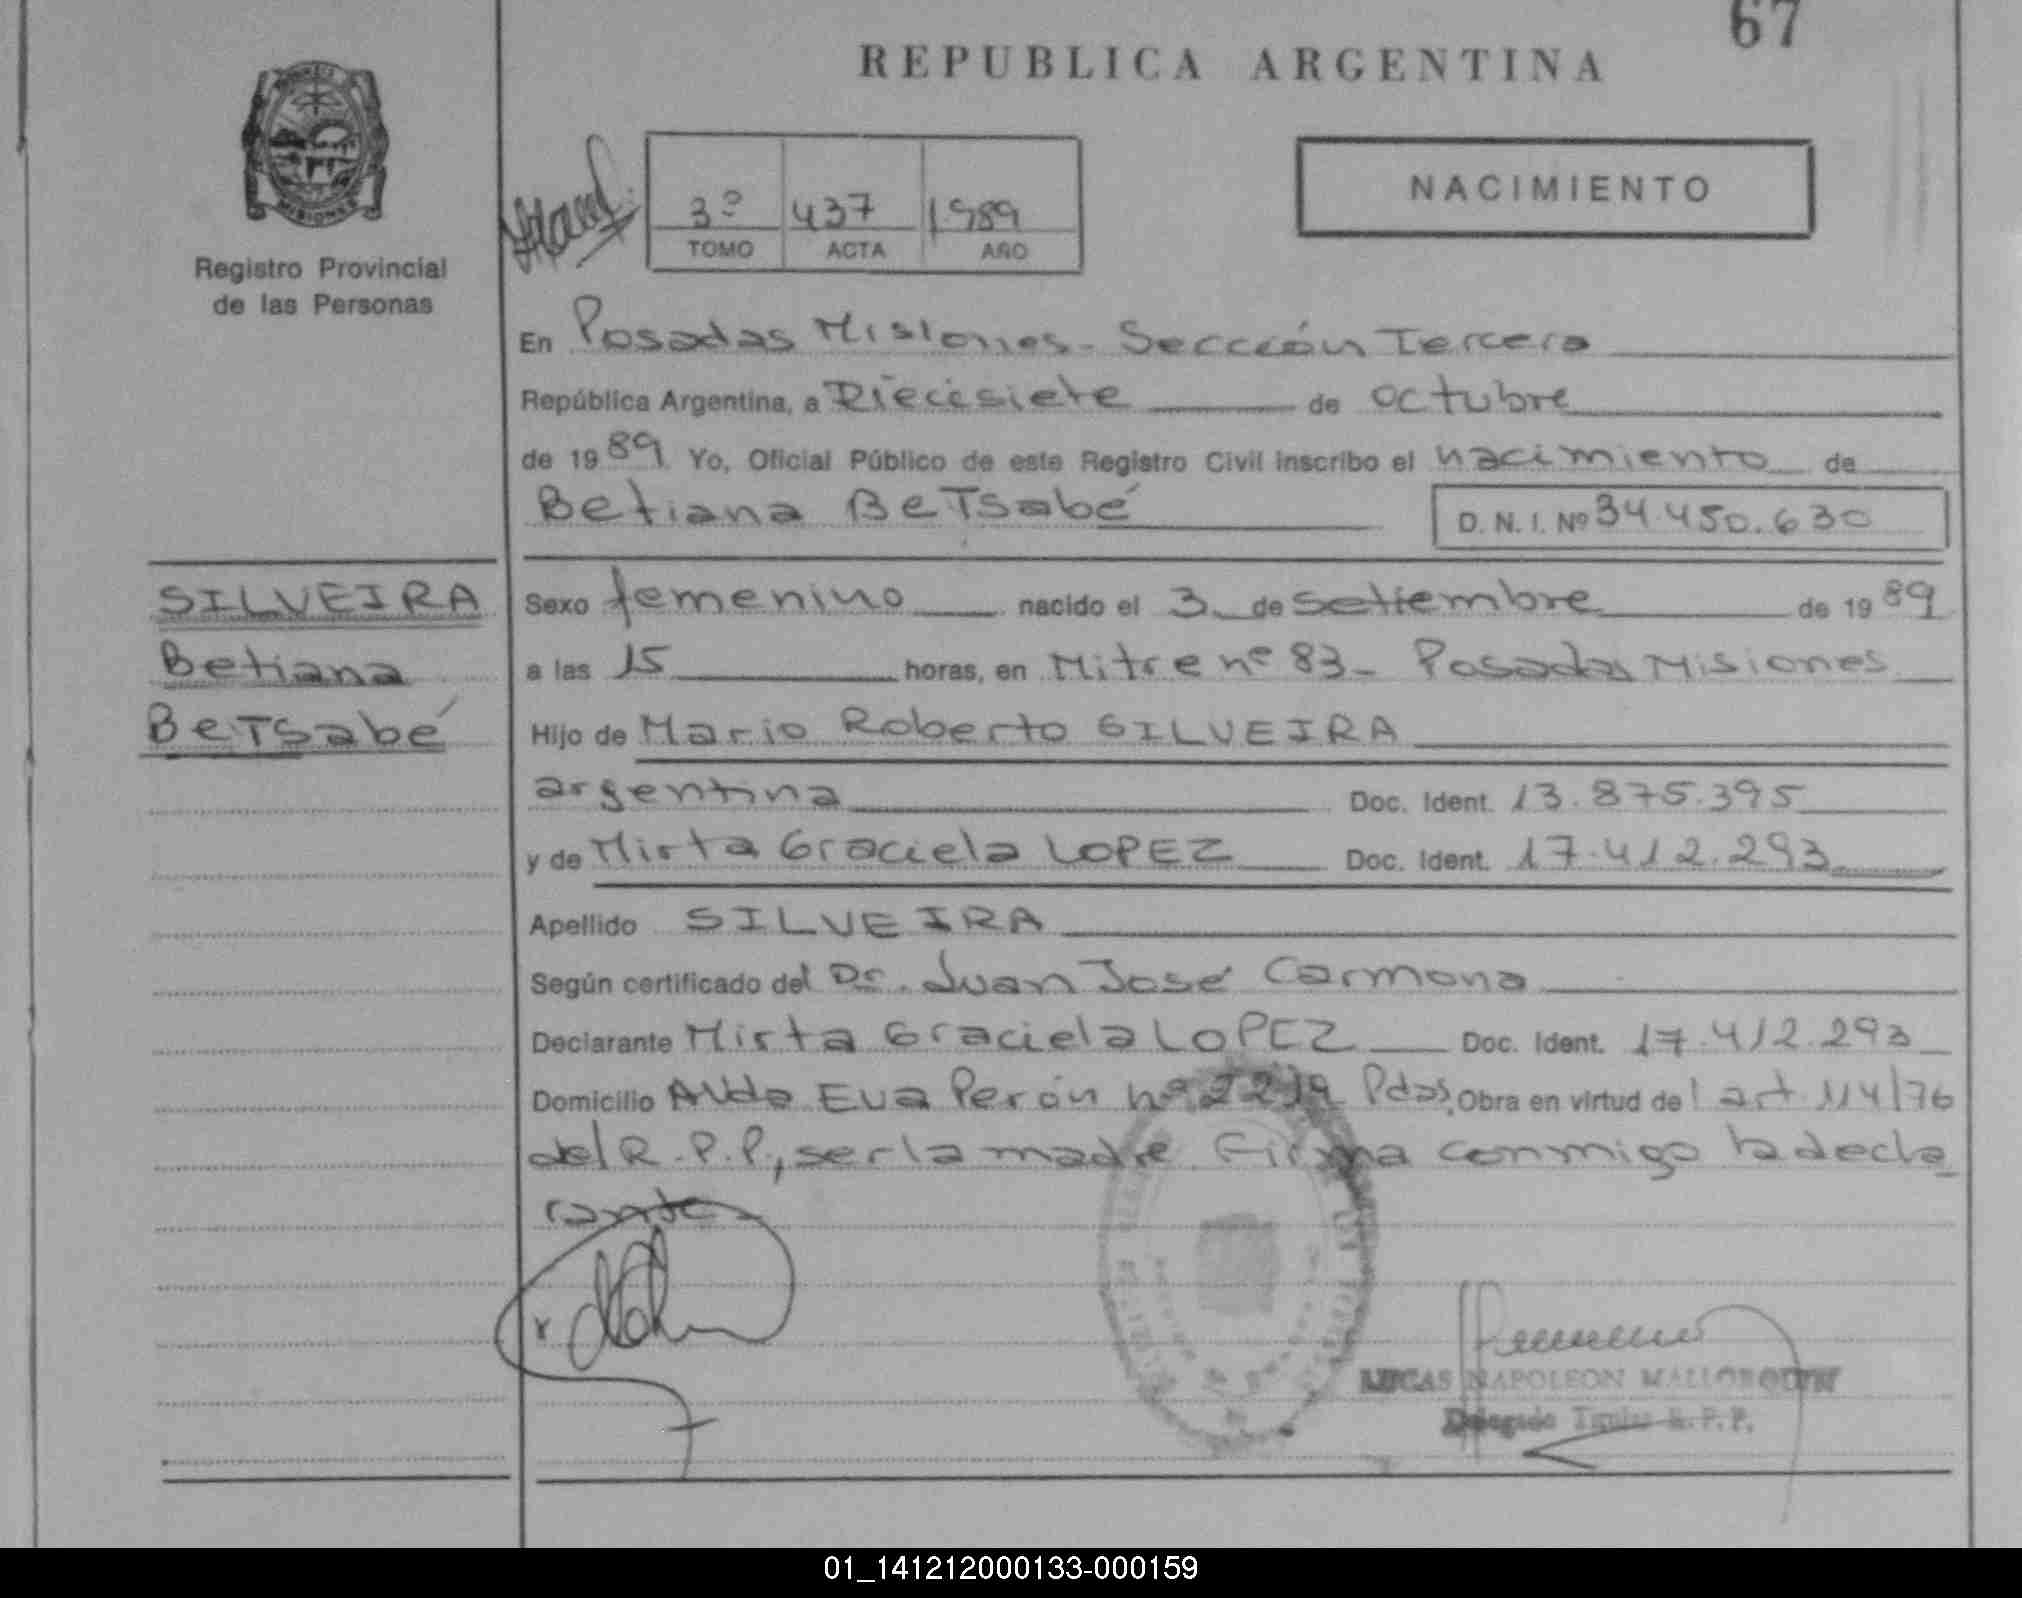 67
REPUBLICA ARGENTINA
MISIONES
Registro Provincial
de las Personas
3º 437 1989
TOMO ACTA AÑO
NACIMIENTO
En Posadas Misiones. Seccción Tercera
República Argentina, a Diecisiete de octubre
de 1989 Yo, Oficial Público de este Registro Civil inscribo el nacimiento de
Betiana BeTsabé D.N.I. Nº 34.450.630
SILVEIRA
Betiana
BeTsabé
Sexo femenino nacido el 3 de setiembre de 1989
a las 15 horas, en Mitre nº 83 - Posadas Misiones
Hijo de Mario Roberto SILVEIRA
argentina Doc. Ident. 13.875.395
y de Mirta Graciela LOPEZ Doc. Ident. 17.412.293
Apellido SILVEIRA
Según certificado del Dr. Juan José Carmona
Declarante Mirta Graciela LOPEZ Doc. Ident. 17.412.293
Domicilio Avda Eva Perón nº Pdas, Obra en virtud del art. 114/76
del R.P.P., ser la madre. Firma conmigo la decla
rante.
LUCAS NAPOLEON MALLORQUIN
Delegado Titular R.P.P.
01_141212000133-000159